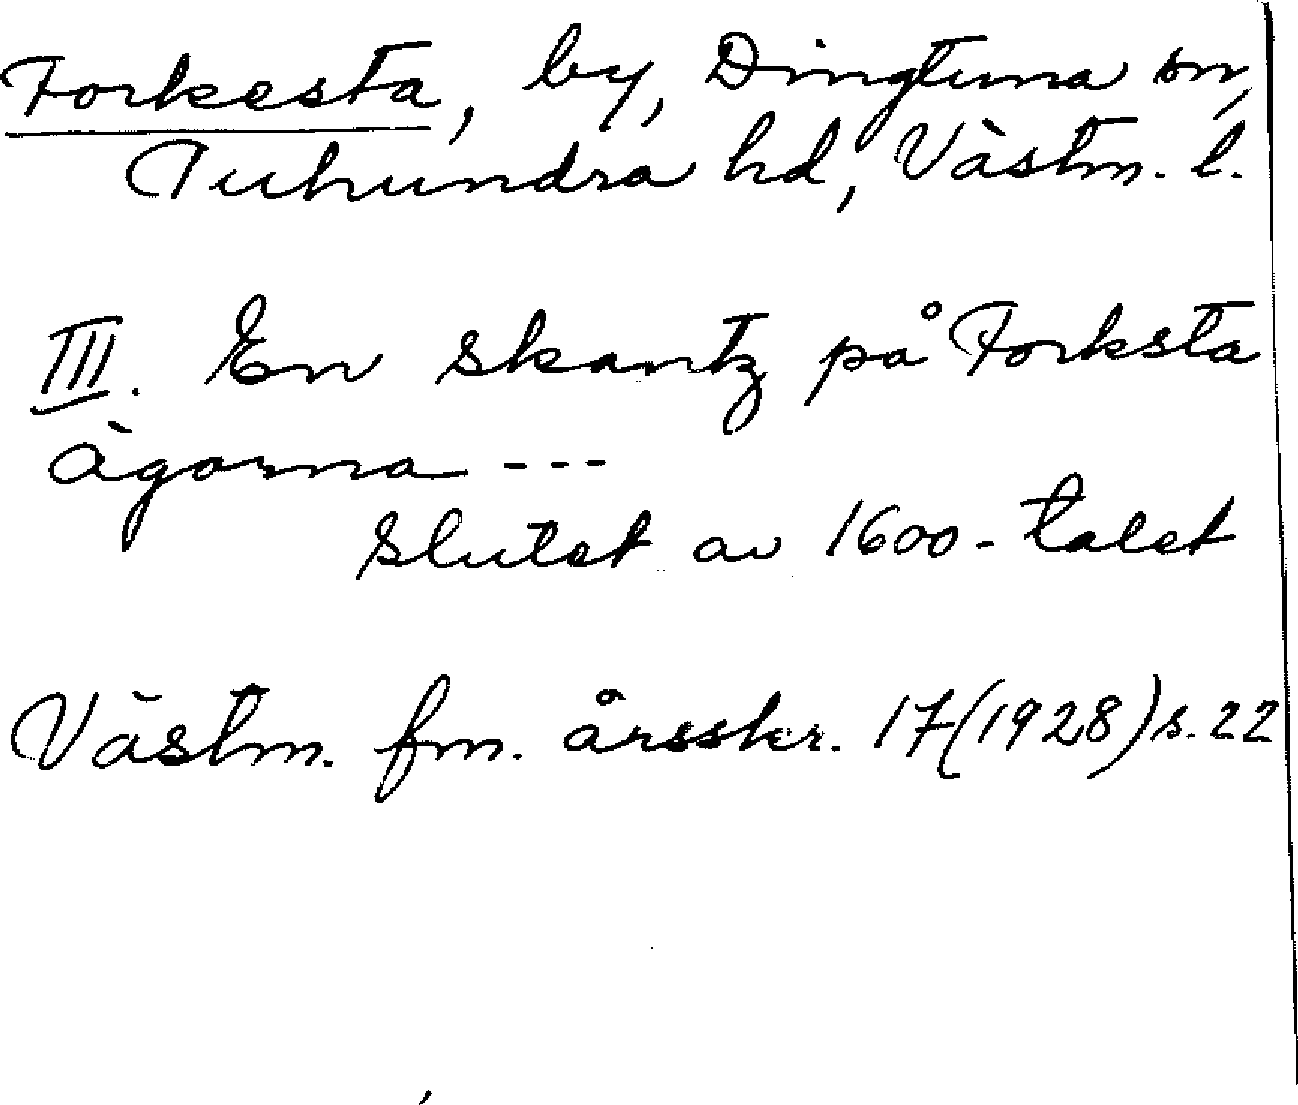 Forkesta, by, Dingtuna sn,
Tuhundra hd, Västm. l.
III. En skantz på Forksta
ägorna ---
slutet av 1600-talet
Västm. fm. årsskr. 17(1928)s.22